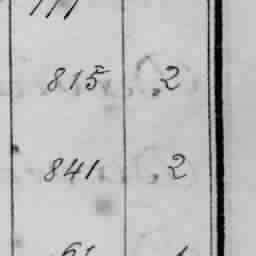 815 .2
841 .2